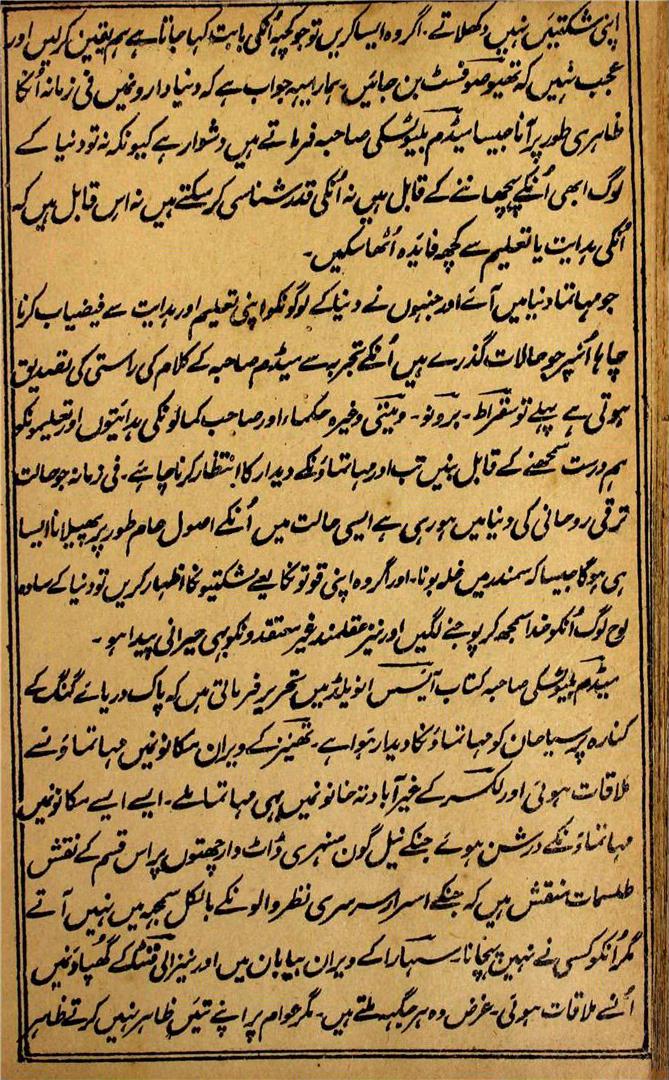 اپنی شکتیئں نہیں دکھلاتے ۔ اگر وہ ایسا کریں تو جو کچھ اُنکی بابت کہا جاتا ہے ہم یقین کر لیں اور
عجب نہیں کہ تھیوصوفسٹ بن جائیں ۔ ہمارا یہہ جواب ہے کہ دنیا دارونمیں فی زمانہ اُنکا
ظاہری طور پر آنا جیسا میڈم بلیوٹسکی صاحبہ فرماتے ہیں دشوار ہے کیونکہ نہ تو دنیا کے
لوگ ابھی اُنکے پہچاننے کے قابل ہیں نہ اُنکی قدر شناسی کر سکتے ہیں نہ اس قابل ہیں کہ
اُنکی ہدایت یا تعلیم سے کچھ فایدہ اُٹھا سکیں ۔
جو مہاتما دنیا میں آئے اور جنہوں نے دنیا کے لوگونکو اپنی تعلیم اور ہدایت سے فیضیاب کرنا
چاہا اُنپر جو حالات گذرے ہیں اُنکے تجربہ سے میڈم صاحبہ کے کلام کی راستی کی تصدیق
ہوتی ہے پہلے تو سقراط ۔ برونو ۔ وینٹی وغیرہ حکماء اور صاحب کمالونکی ہدایتوں اور تعلیمونکو
ہم درست سمجھنے کے قابل بنیں تب اور مہاتماؤنکے دیدار کا انتظار کرنا چاہئے ۔ فی زمانہ جو حالت
ترقی روحانی کی دنیا میں ہو رہی ہے ایسی حالت میں اُنکے اصول عام طور پر پھیلانا ایسا
ہی ہوگا جیسا کہ سمندر میں غلہ بونا ۔ اور اگر وہ اپنی قوتونکا یعنے شکتیونکا اظہار کریں تو دنیا کے سادہ
لوح لوگ اُنکو خدا سمجھ کر پوجنے لگیں اور نیز عقلمند غیر معتقدونکو بہی حیرانی پیدا ہو ۔
میڈم بلیوٹسکی صاحبہ کتاب آئیسس انویلڈ میں تحریر فرماتی ہیں کہ پاک دریائے گنگ کے
کنارہ پر سیاحان کو مہاتماؤنکا دیدار ہوا ہے ۔ تھیبز کے ویران مکانونمیں مہاتماؤنسے
ملاقات ہوئی اور لکسر کے غیر آباد تہ خانونمیں بہی مہاتما ملے ۔ ایسے ایسے مکانونمیں
مہاتماؤنکے درشن ہوئے جنکے نیل گون سنہری ڈاٹ دار چھتوں پر اس قسم کے نقش
طلسمات منقش ہیں کہ جنکے اسرار سرسری نظر والونکے بالکل سمجھ میں نہیں آتے
مگر اُنکو کسی نے نہیں پہچانا ۔ سہارا کے ویران بیابان میں اور نیز ایلی فنٹکے گھپاؤنمیں
اُنسے ملاقات ہوئی ۔ غرض وہ ہر جگہہ ملتے ہیں ۔ مگر عوام پر اپنے تئیں ظاہر نہیں کرتے ظاہر